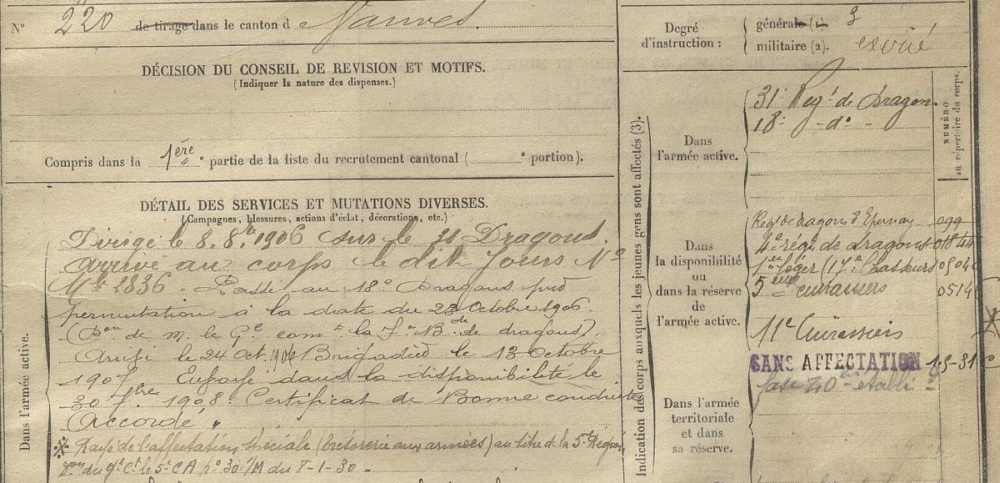 N° 220 de tirage dans le canton d
DÉCISION DU CONSEIL DE REVISION ET MOTIFS.
(Indiquer la nature des dispenses.)
Compris dans la 1ère partie de la liste du recrutement cantonal ( e portion).
DÉTAIL DES SERVICES ET MUTATIONS DIVERSES.
(Campagnes, blessures, actions d'éclat, décorations, etc.)
Dans l'armée active.
Dirigé le 8. 8bre 1906 sur le 31 Dragons.
Arrivé au corps le dit Jours No
Mle 1836. Passé au 18e Dragons par
permutation à la date du 23 Octobre 1906.
de M. le Gl comt la Bde de dragons)
Arrivé le 24 Oct. 1906 Brigadier le 13 Octobre
1907. dans la disponibilité le
30 7bre 1908. Certificat de Bonne conduite
Accordé.
Rayé de l'affectation spéciale (trésorerie aux armées) au titre de la 5e Région
du Gl Ct le 5e CA No 30/M du 8-1-30-
Degré d'instruction :
générale (1). 3
militaire (2). exercé
NUMÉRO au répertoire du corps.
Indication des corps auxquels les jeunes gens sont affectés (3).
Dans l'armée active.
31e Regt de Dragon.
18e -do-
Dans la disponibilité ou dans la réserve de l'armée active.
Regt de dragons d'Epernay 099
4e régt de Dragons 01844
1er léger (17e Chasseurs 0504
5eme cuirassiers 0514
11e Cuirassiers
SANS AFFECTATION
Dans l'armée territoriale et dans sa réserve.